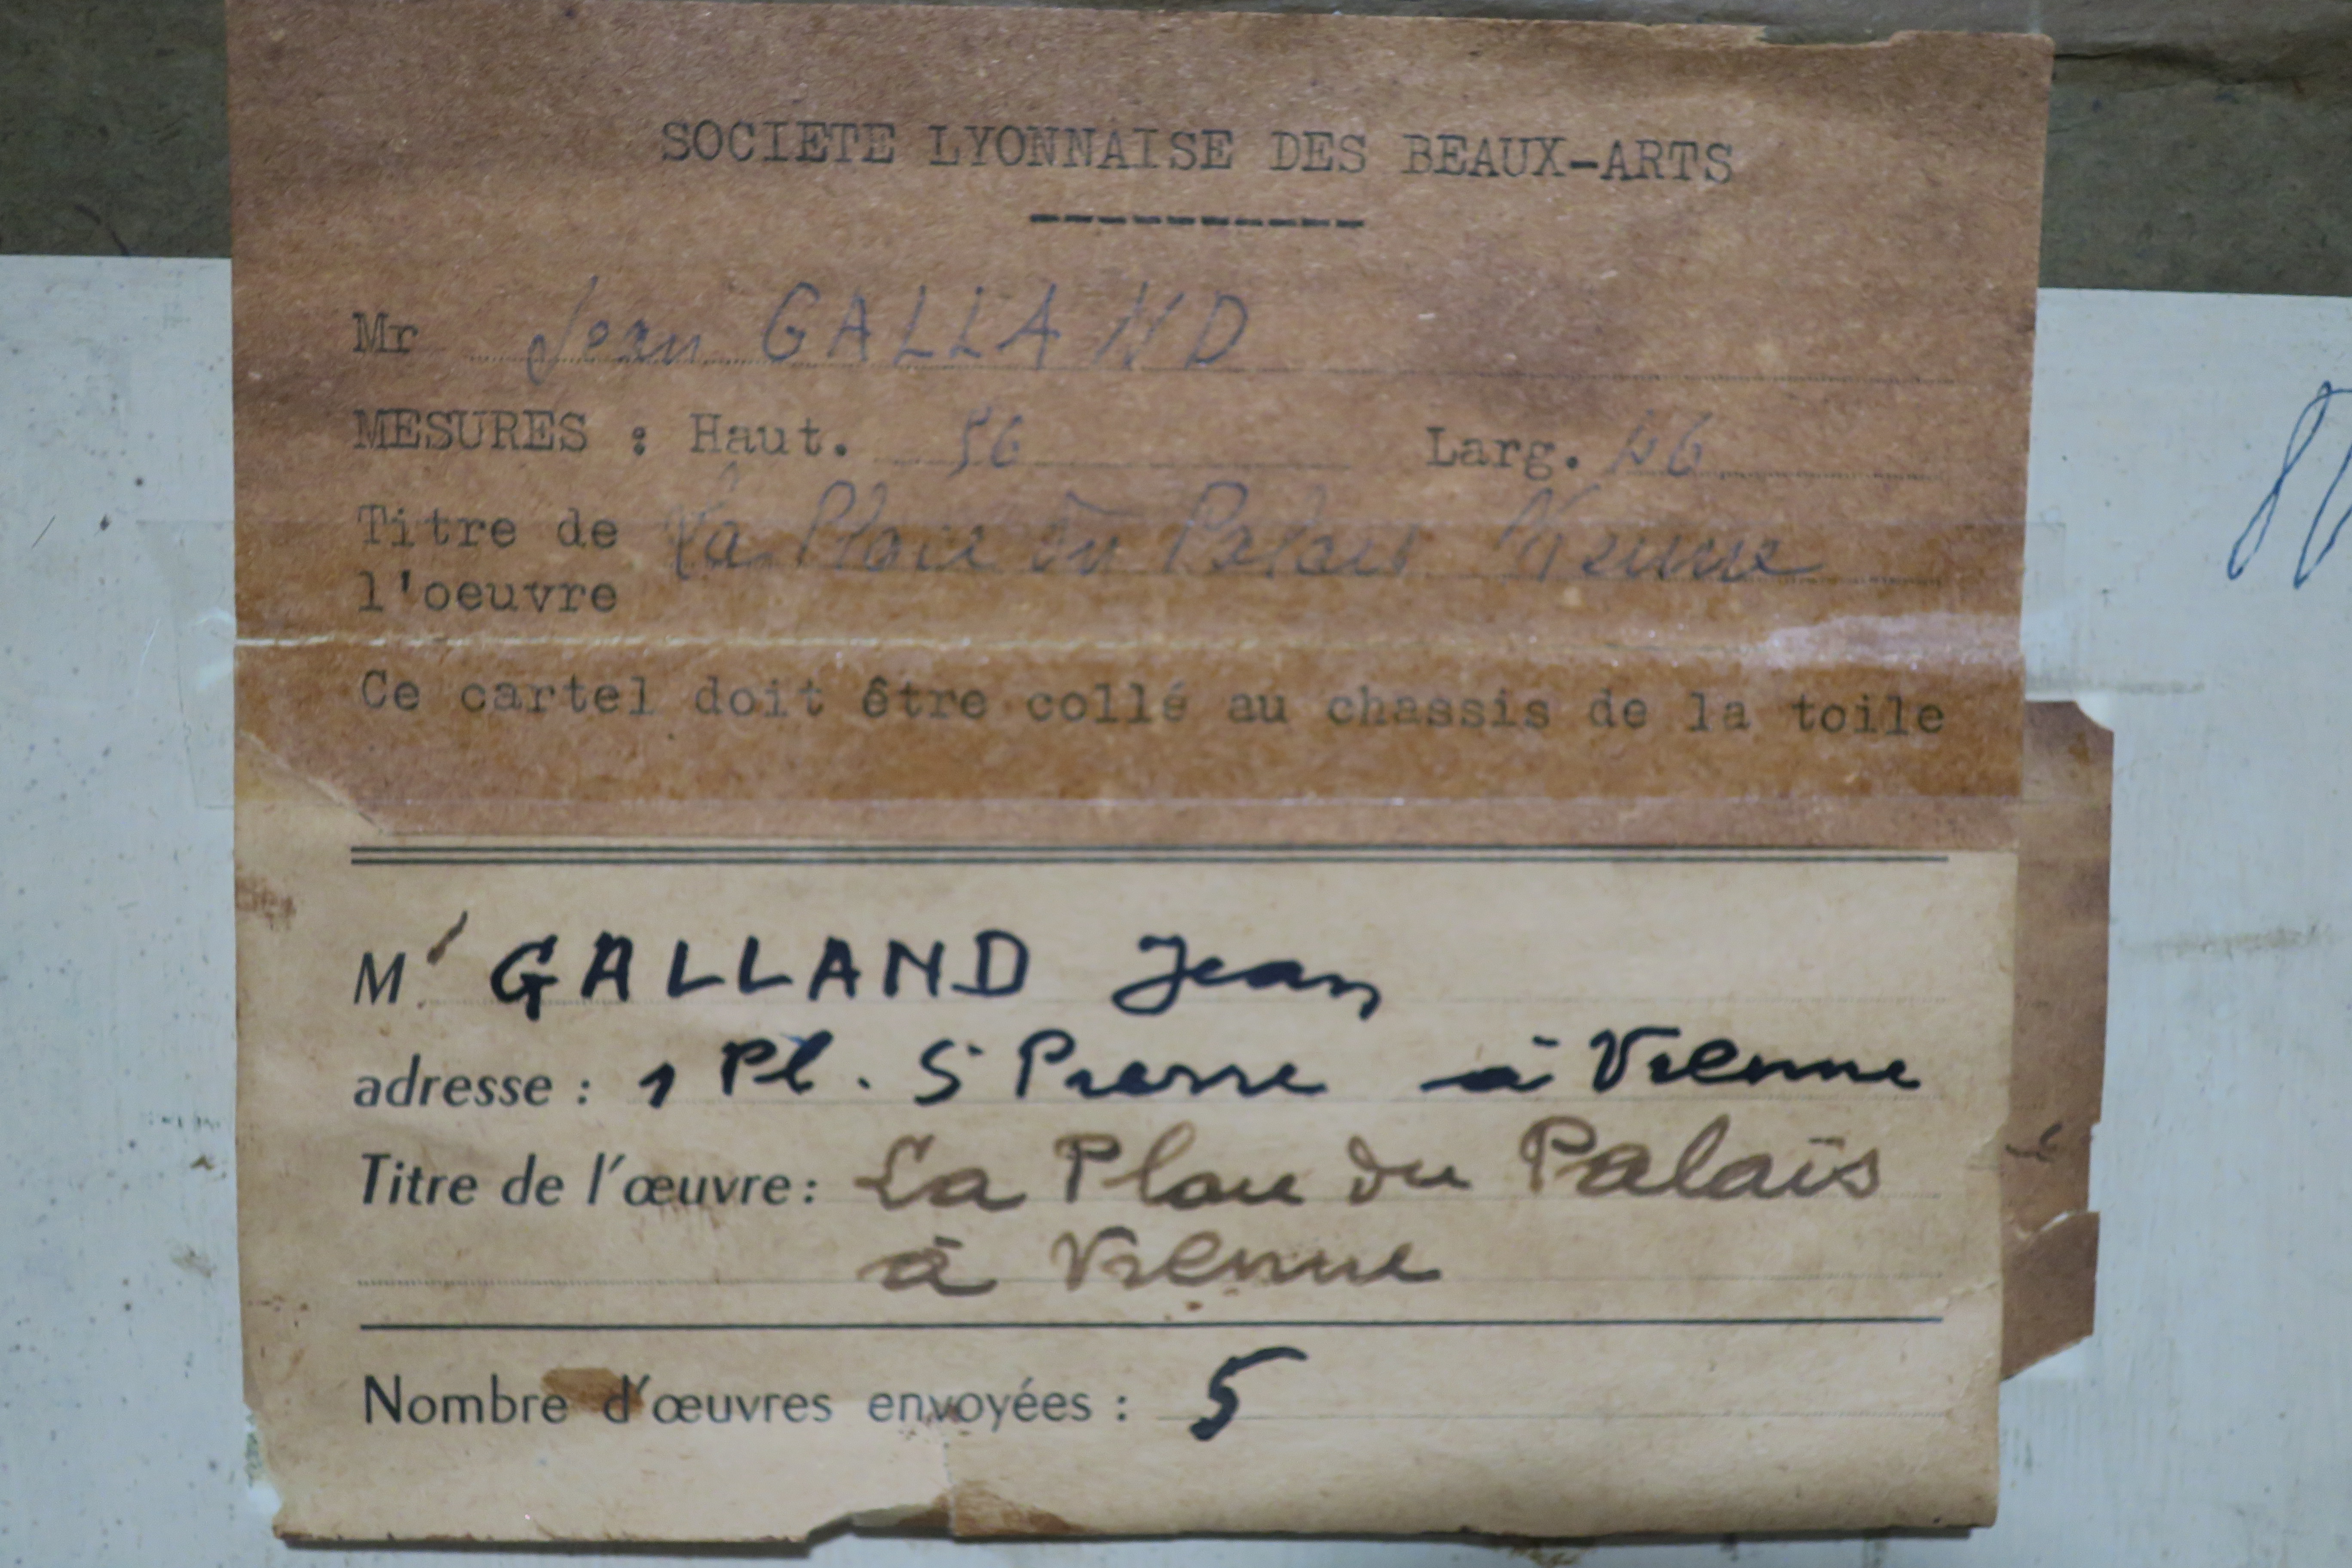 SOCIETE LYONNAISE DES BEAUX-ARTS
Mr Jean GALLAND
MESURES : Haut. 56 Larg. 46
Titre de La Place du Palais Vienne
l'oeuvre
Ce cartel doit être collé au chassis de la toile
Mr. GALLAND Jean
adresse : 1 Pl. St Pierre à Vienne
Titre de l'œuvre : La Place du Palais
à Vienne
Nombre d'œuvres envoyées : 5